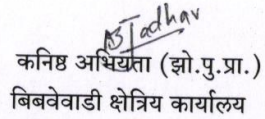 Jadhav
कनिष्ठ अभियंता (झो.पु.प्रा.)
बिबवेवाडी क्षेत्रिय कार्यालय